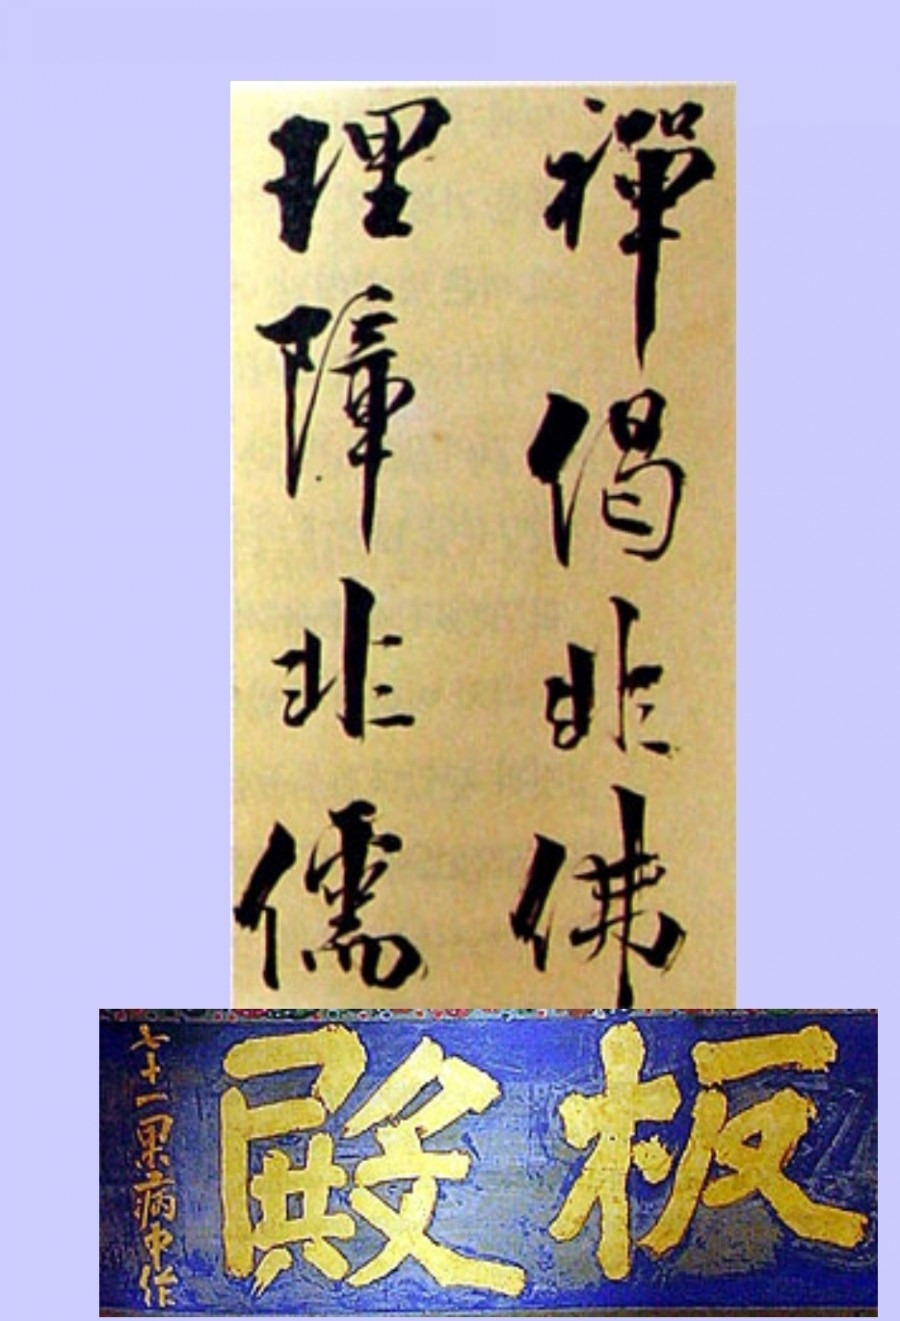 禪偈非佛
理障非儒
板殿
七十一果病中作